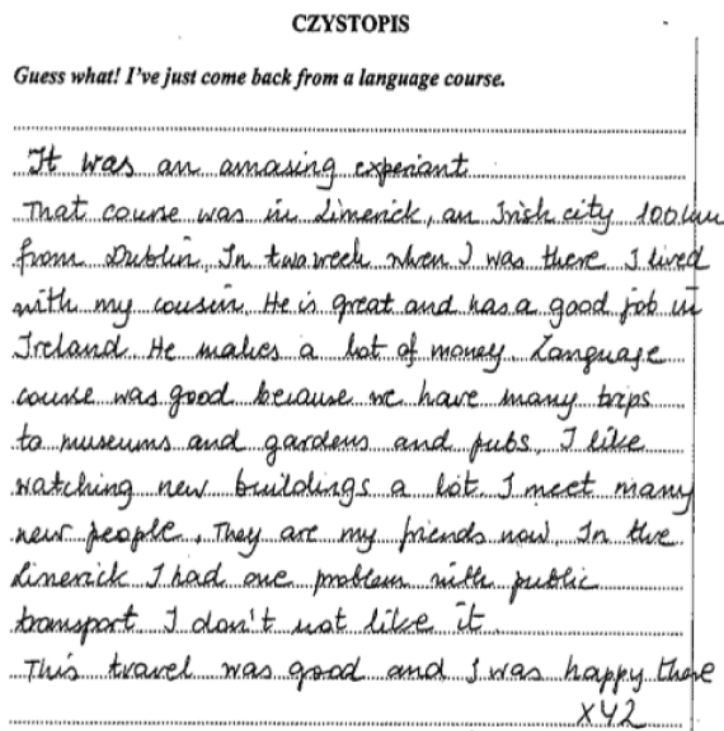 CZYSTOPIS
Guess what! I've just come back from a language course.
It was an amasing experiant
That course was in Limerick, an Irish city 100km
from Dublin. In two week when I was there I lived
with my cousin. He is great and has a good job in
Ireland. He makes a lot of money. Language
course was good because we have many trips
to museums and gardens and pubs. I like
watching new buildings a lot. I meet many
new people. They are my friends now. In the
Limerick I had one problem with public
transport. I don't not like it.
This travel was good and I was happy there
XYZ